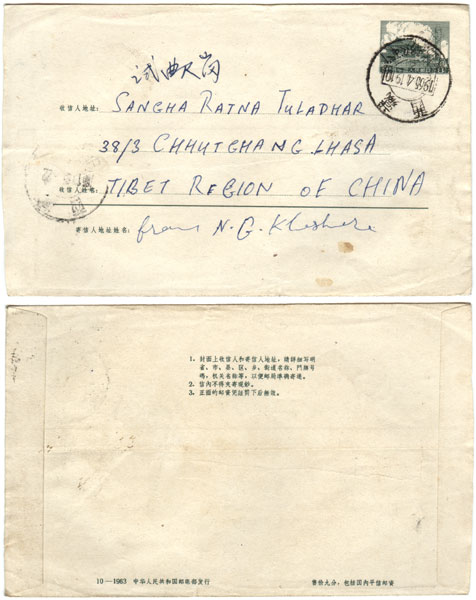 1965.4.19.10
收信人地址: SANGHA RATNA TULADHAR
38/3 CHHUTCHANG LHASA
收信人姓名: TIBET REGION OF CHINA
寄信人地址姓名: from N. G. Kheshere
1. 封面上收信人和寄信人地址,請詳細写明
省、市、县、区、乡、街道名称、門牌号
碼、机关名称等,以便邮局准确寄递。
2. 信內不得夹寄現鈔。
3. 正面的邮資凭証剪下后無效。
10—1963 中华人民共和国邮电部发行
售价九分,包括国内平信邮資